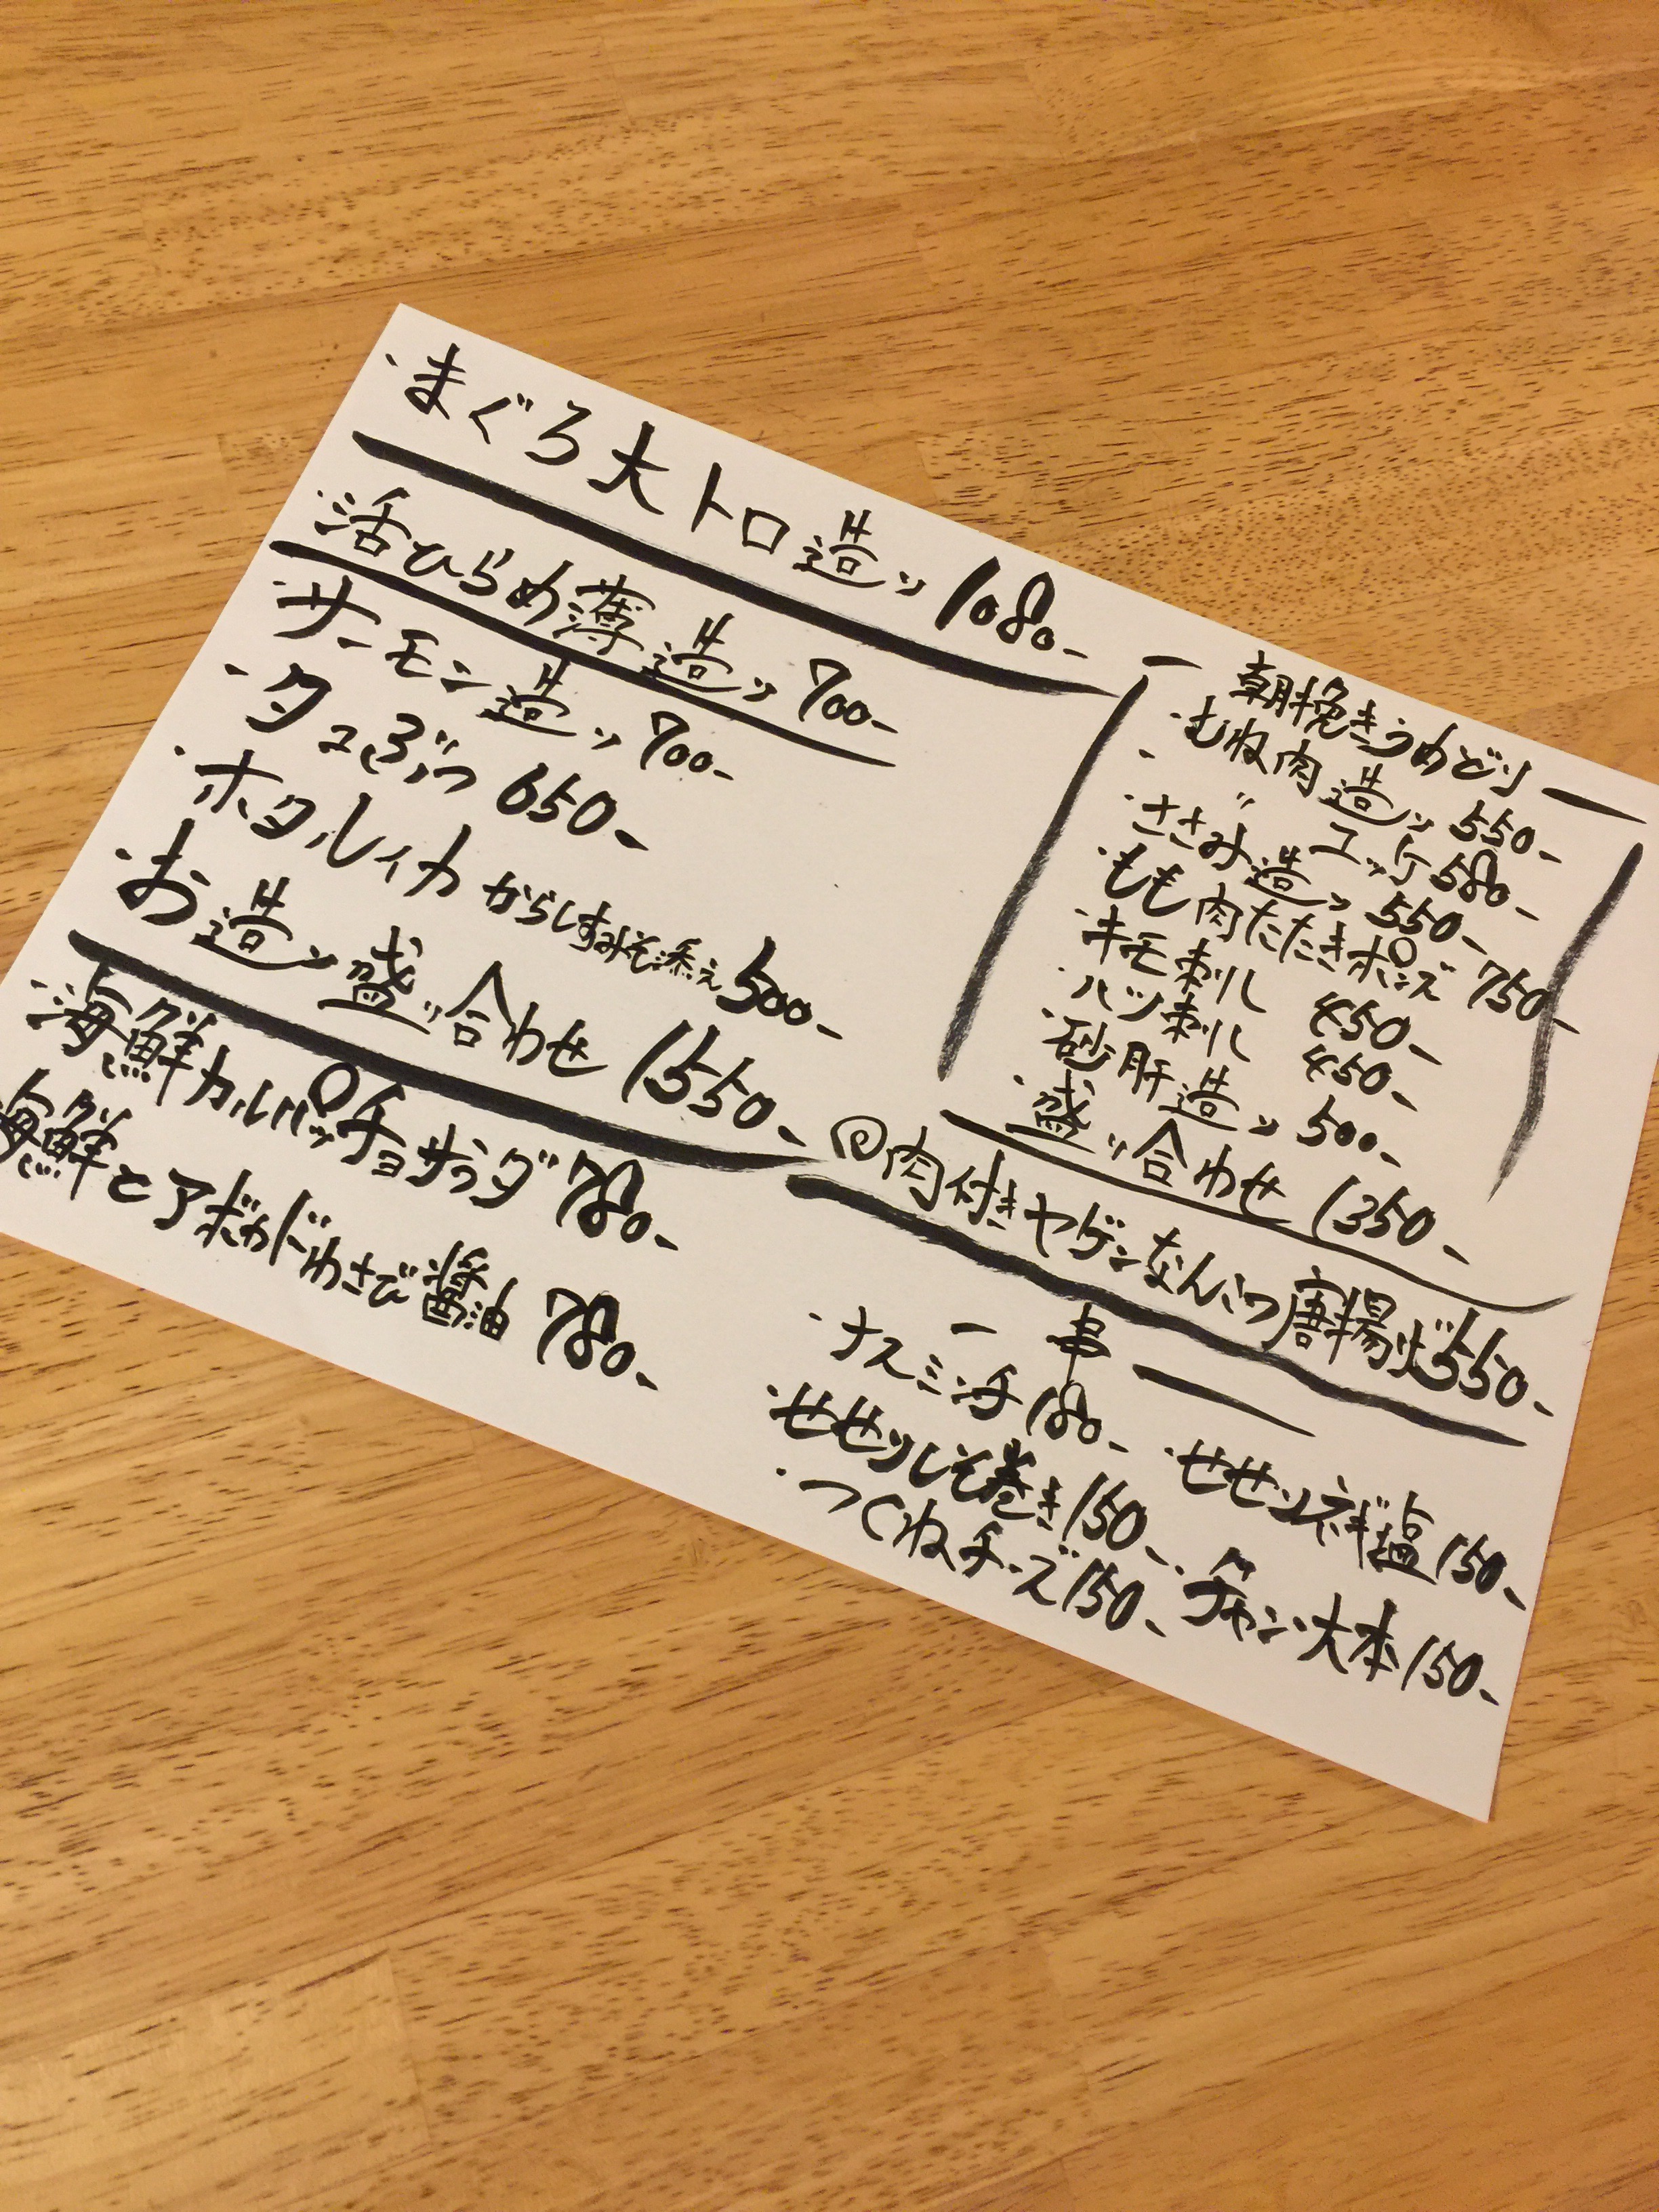 ・まぐろ大トロ造り 1080-
・活ひらめ薄造り 700-
・サーモン造り 700-
・タコぶつ 650-
・ホタルイカ からしすみそ添え 500-
・お造り盛り合わせ 1550-
・海鮮カルパッチョサラダ 780-
海鮮とアボカドわさび醤油 780-
ー 朝挽きうめどり ー
・むね肉造り 550-
・ 〃 ユッケ 580-
・ささみ造り 550-
・もも肉たたきポンズ 750-
・キモ刺し 450-
・ハツ刺し 450-
・砂肝造り 500-
・盛り合わせ 1350-
◎肉付きヤゲンなんこつ唐揚げ 550-
ー 串 ー
・ナスミンチ 180-
・せせりしそ巻き 150-
・つくねチーズ 150-
・せせりネギ塩 150-
・チャン大本 150-